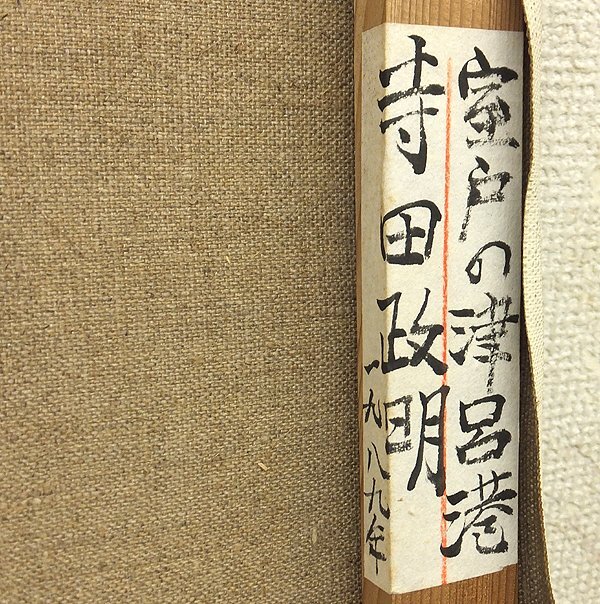 室戸の津呂港
寺田政明
一九八九年